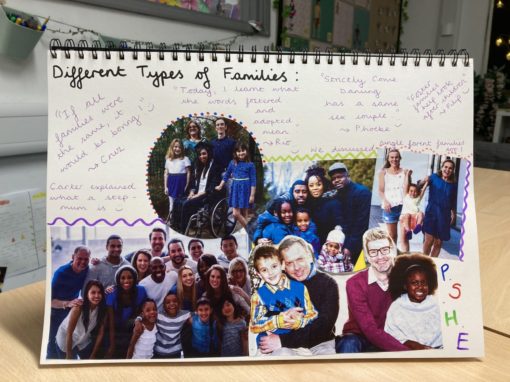 Different Types of Families:
"If all
families were
the same, it
would be boring"
→ Cruz
"Today, I learnt what
the words fostered
and
adopted
mean
→ Rio
"Strictly Come
Dancing
has a same
sex couple"
→ Phoebe
"Foster
families
help look
after children"
We discussed single parent families
too!
explained
what a step-
mum is
P
S
H
E